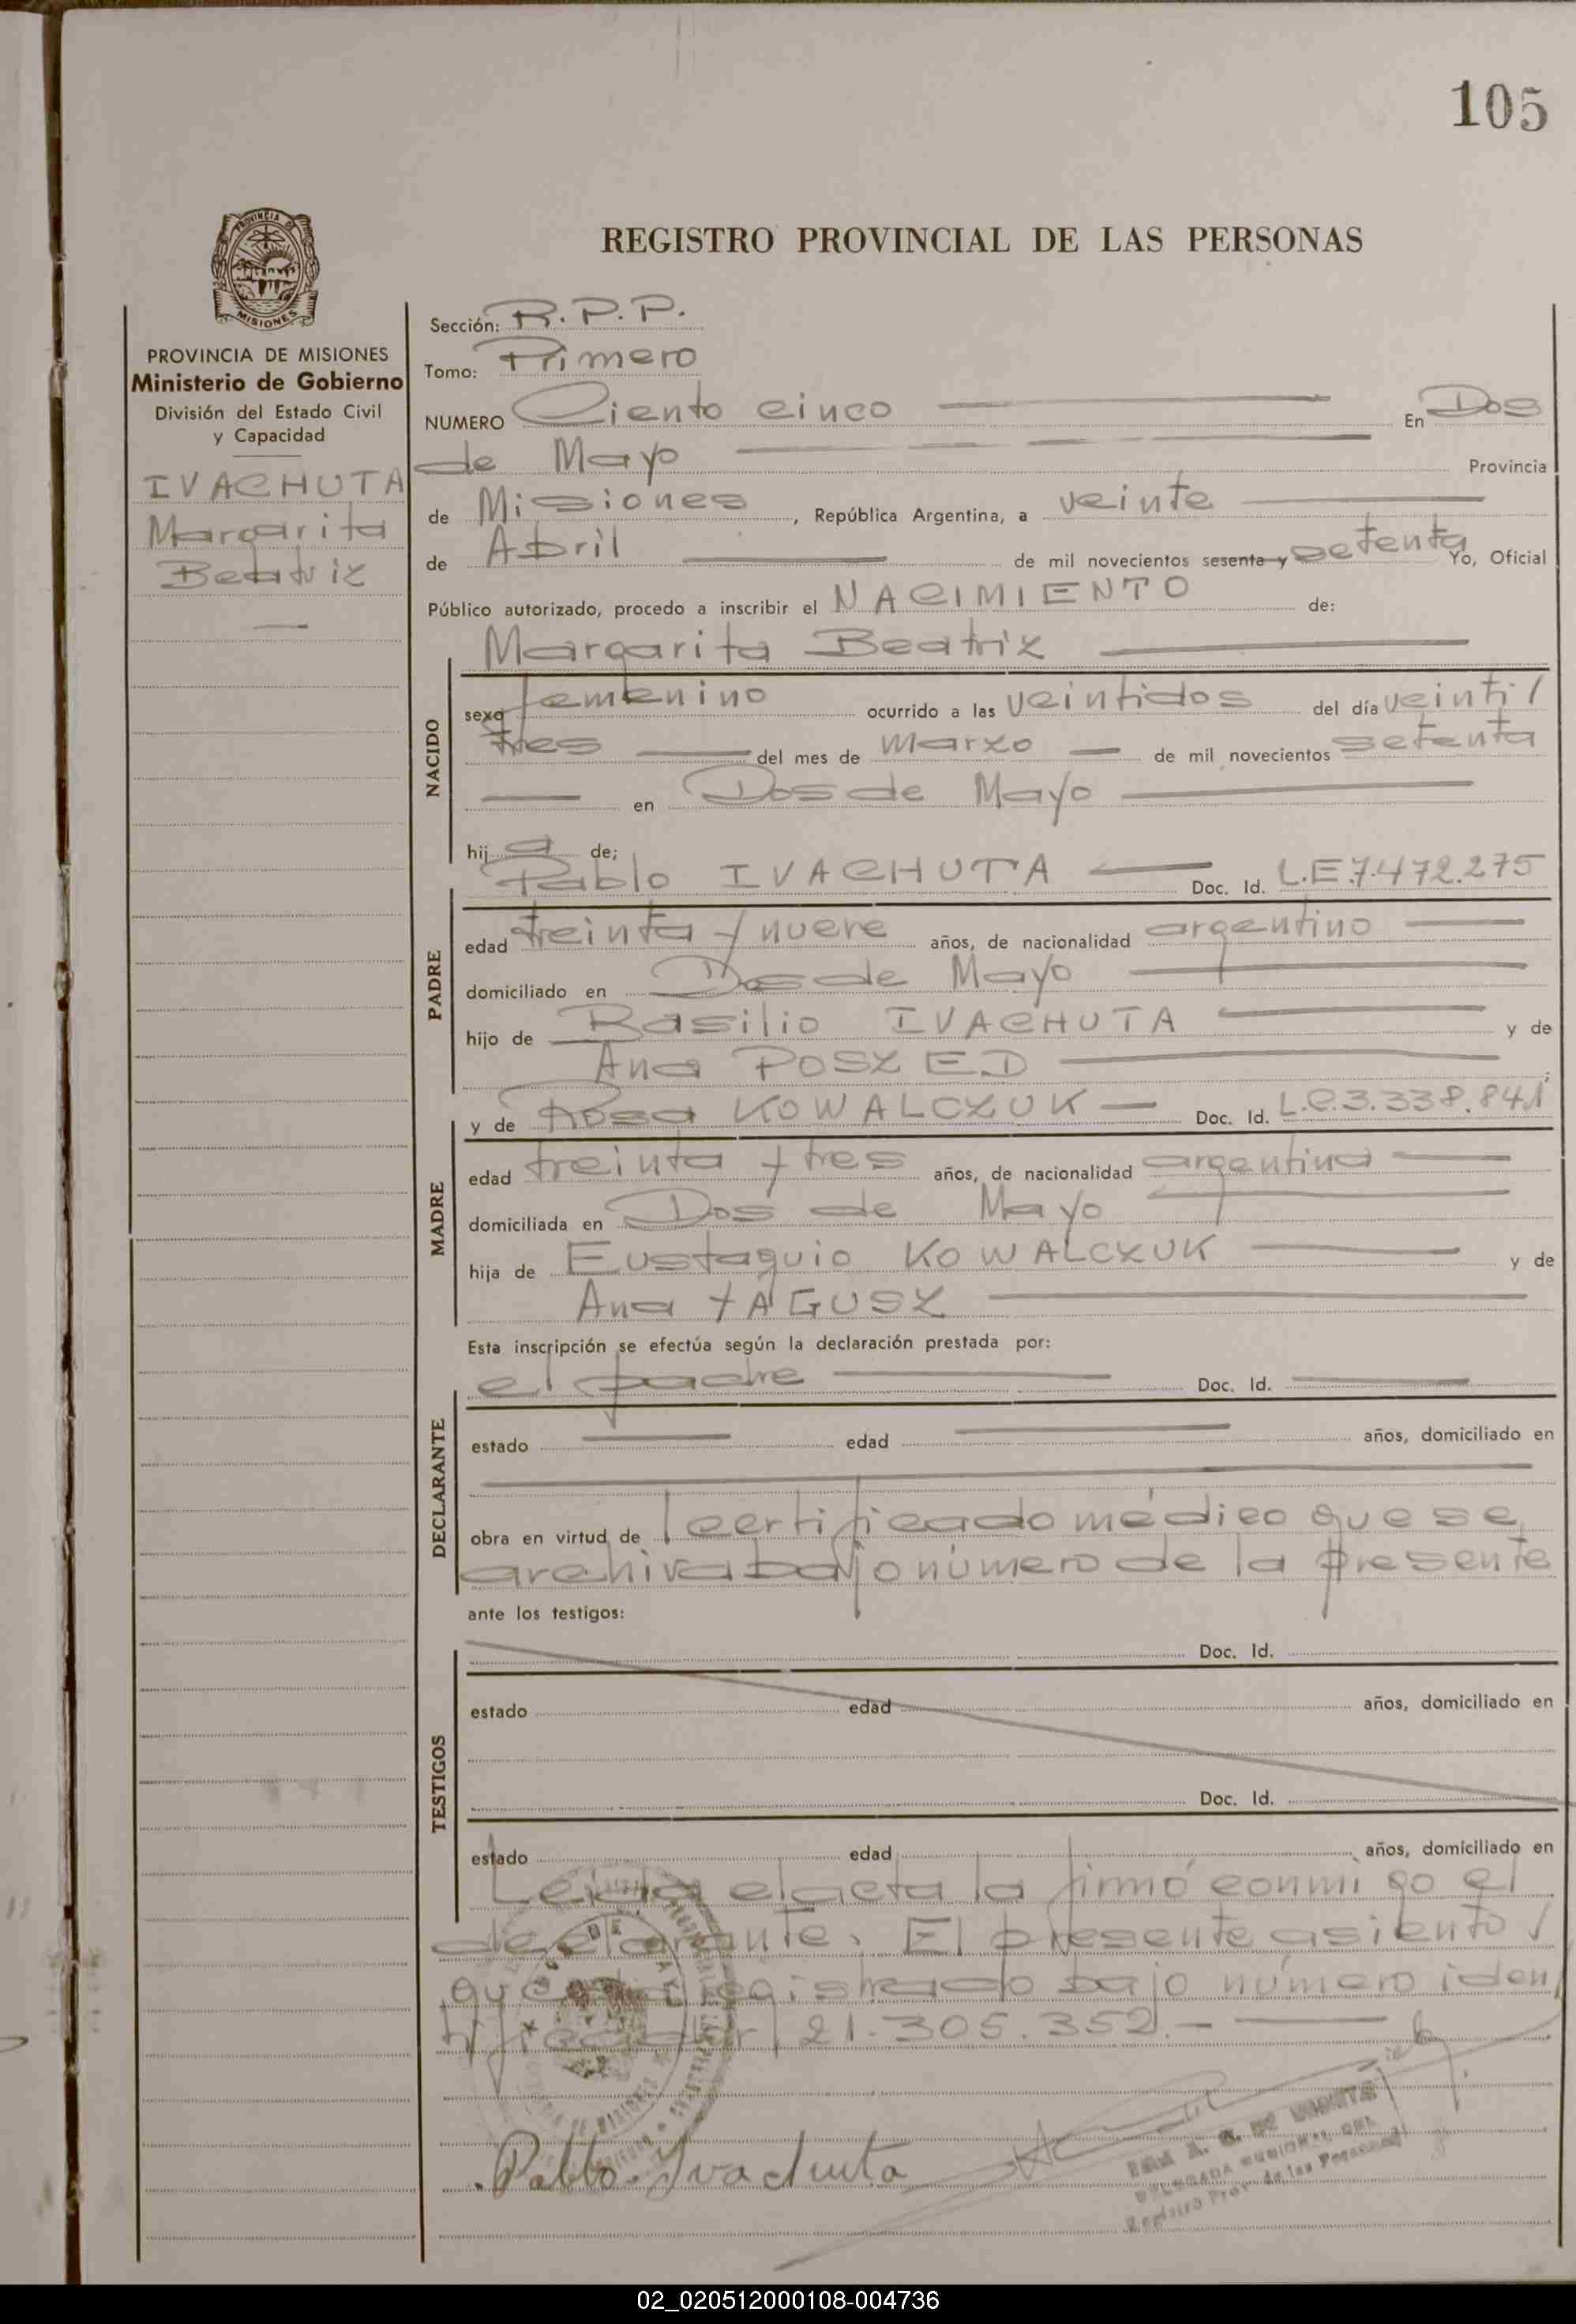 105
PROVINCIA DE
MISIONES
PROVINCIA DE MISIONES
Ministerio de Gobierno
División del Estado Civil
y Capacidad
IVACHUTA
Margarita
Beatriz
REGISTRO PROVINCIAL DE LAS PERSONAS
Sección: R.P.P.
Tomo: Primero
NUMERO Ciento cinco En Dos
de Mayo Provincia
de Misiones, República Argentina, a veinte
de Abril de mil novecientos sesenta y setenta Yo, Oficial
Público autorizado, procedo a inscribir el NACIMIENTO de:
Margarita Beatriz
NACIDO
sexo femenino ocurrido a las veintidos del día veinti/
tres del mes de marzo de mil novecientos setenta
en Dos de Mayo
hija de;
Pablo IVACHUTA Doc. Id. L.E.7.472.275
PADRE
edad treinta y nueve años, de nacionalidad argentino
domiciliado en Dos de Mayo
hijo de Basilio IVACHUTA y de
Ana POSZED;
y de Rosa KOWALCZUK Doc. Id. L.C.3.338.841
MADRE
edad treinta y tres años, de nacionalidad argentina
domiciliada en Dos de Mayo
hija de Eustaquio KOWALCZUK y de
Ana YAGUSZ
Esta inscripción se efectúa según la declaración prestada por:
el padre Doc. Id.
DECLARANTE
estado edad años, domiciliado en
obra en virtud de certificado médico que se
archiva bajo número de la presente
ante los testigos:
Doc. Id.
TESTIGOS
estado edad años, domiciliado en
Doc. Id.
estado edad años, domiciliado en
Leida el acta la firmó conmigo el
declarante. El presente asiento /
queda registrado bajo número iden/
tificador 21.305.352.-
Pablo Ivachuta
Registro Prov. de las Personas
02_020512000108-004736